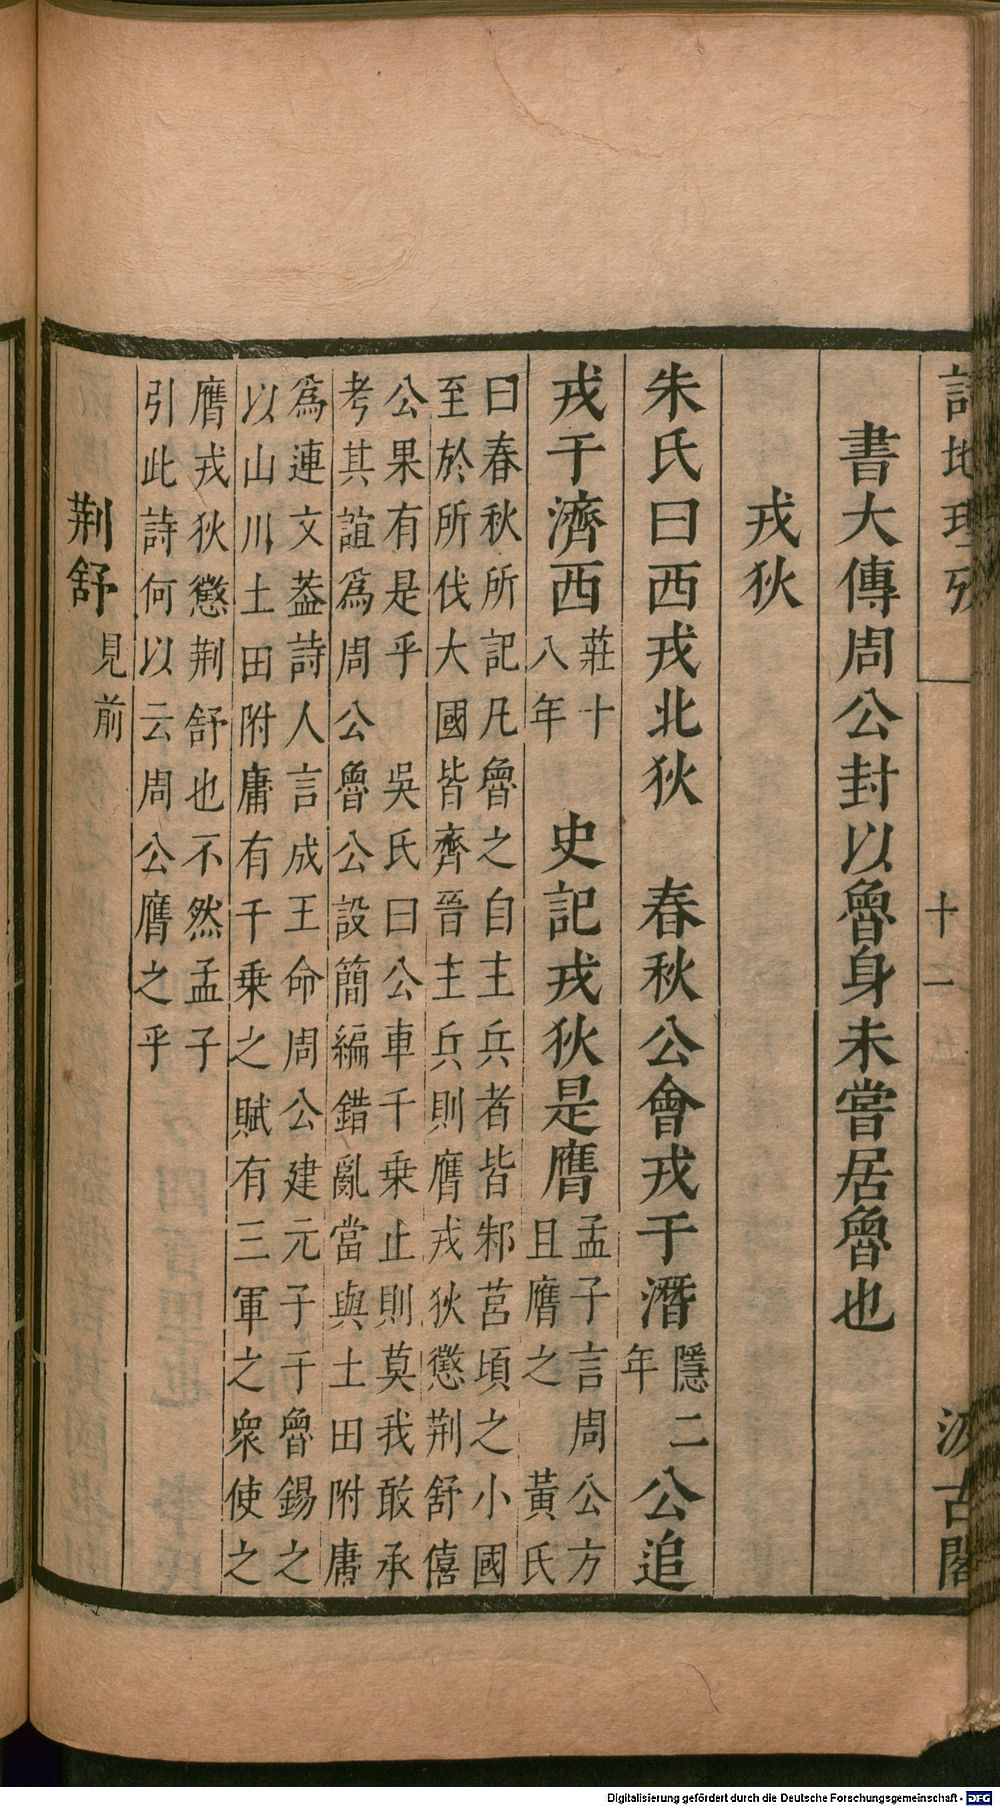 詩地理攷 十一 汲古閣
書大傳周公封以魯身未嘗居魯也
戎狄
朱氏曰西戎北狄 春秋公會戎于潛隱二年公追
戎于濟西莊十八年 史記戎狄是膺孟子言周公方且膺之 黃氏
曰春秋所記凡魯之自主兵者皆邾莒頃之小國
至於所伐大國皆齊晉主兵則膺戎狄懲荆舒僖
公果有是乎 吳氏曰公車千乗止則莫我敢承
考其誼爲周公魯公設簡編錯亂當與土田附庸
爲連文葢詩人言成王命周公建元子于魯錫之
以山川土田附庸有千乗之賦有三軍之衆使之
膺戎狄懲荆舒也不然孟子
引此詩何以云周公膺之乎
荆舒見前
Digitalisierung gefördert durch die Deutsche Forschungsgemeinschaft - DFG